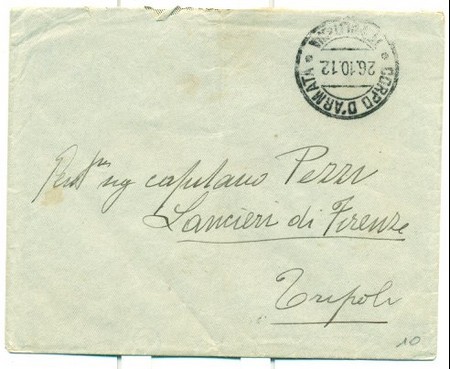 CORPO D'ARMATA
26.10.12
sig capitano Pezzi
Lancieri di Firenze
Tripoli
10